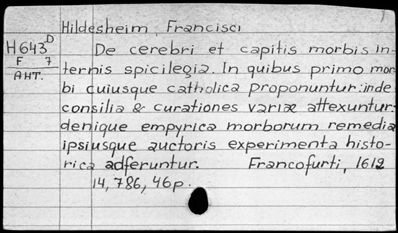 Hildesheim, Francisci
H643D
F 7
AHT.
De cerebri et capitis morbis in-
ternis spicilegia. In quibus primo mor
bi cuiusque catholica proponuntur: inde
consilia & curationes variæ attexuntur:
denique empyrica morborum remedia
ipsiusque auctoris experimenta histo-
rica adferuntur. Francofurti, 1612
14, 786, 46p.